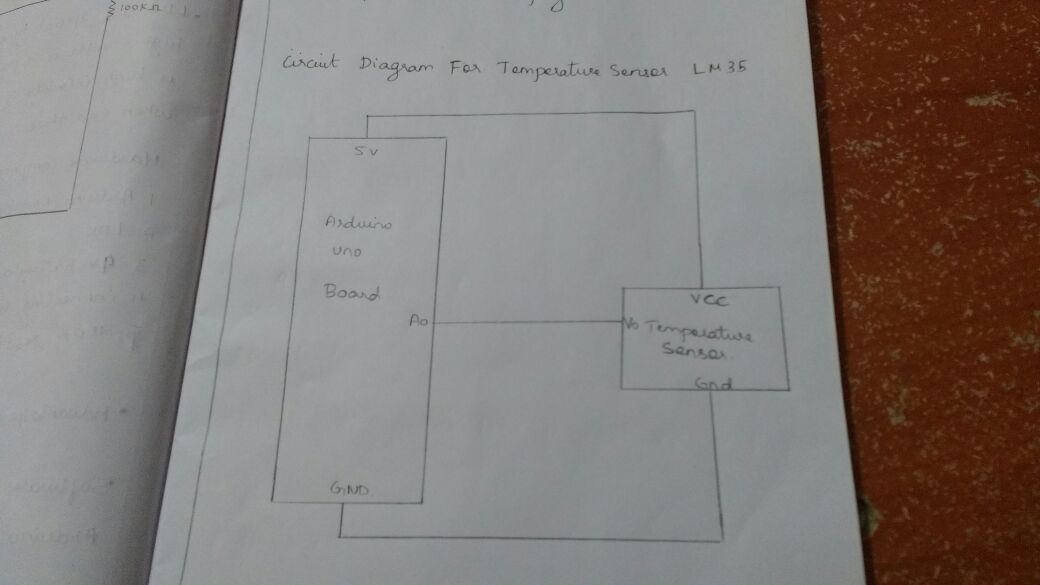 100KΩ
Circuit Diagram For Temperature Sensor LM35
5v
Arduino
uno
Board
Ao
VCC
Vo Temperature
Sensor.
Gnd
GND